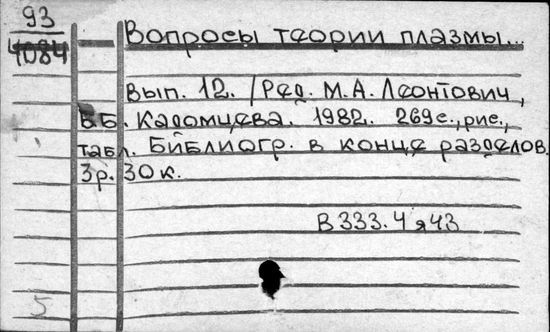 93
4084
Вопросы теории плазмы...
Вып. 12. /Ред. М.А. Леонтович,
Б.Б. Кадомцева. 1982. 269с., рис.,
табл. Библиогр. в конце разделов
3р. 30к.
В 333.4я43
5